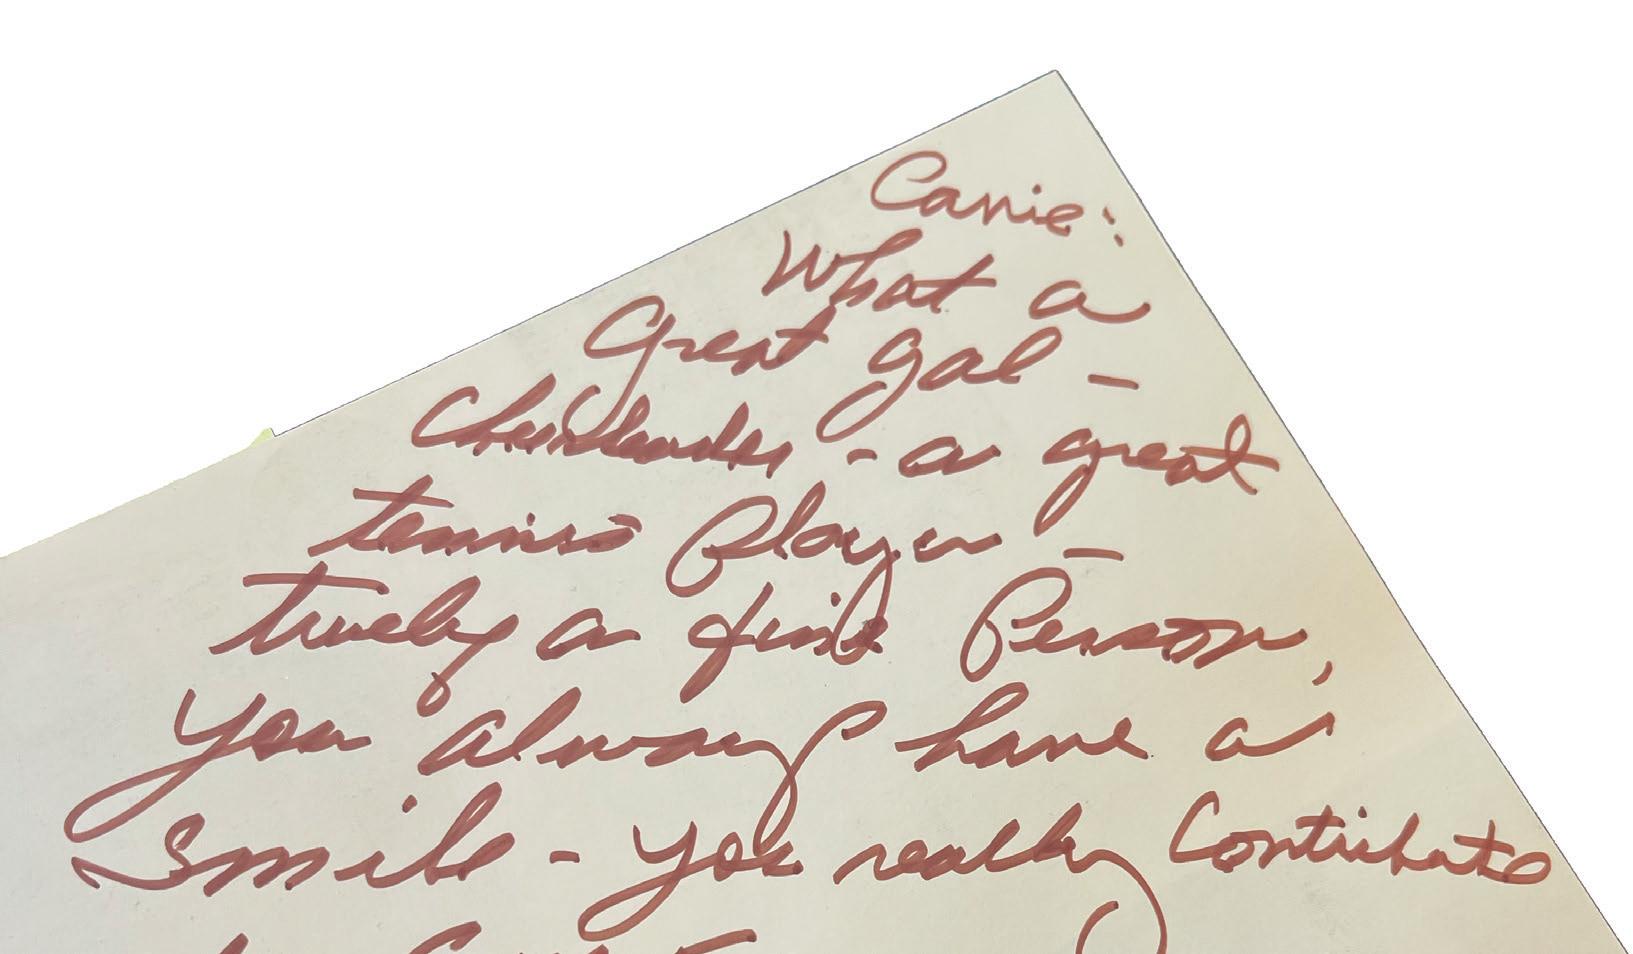 Carrie:
What a
Great gal -
Cheerleader - a great
tennis Player -
truely a fine Person,
you always have a
smile - you really Contribute